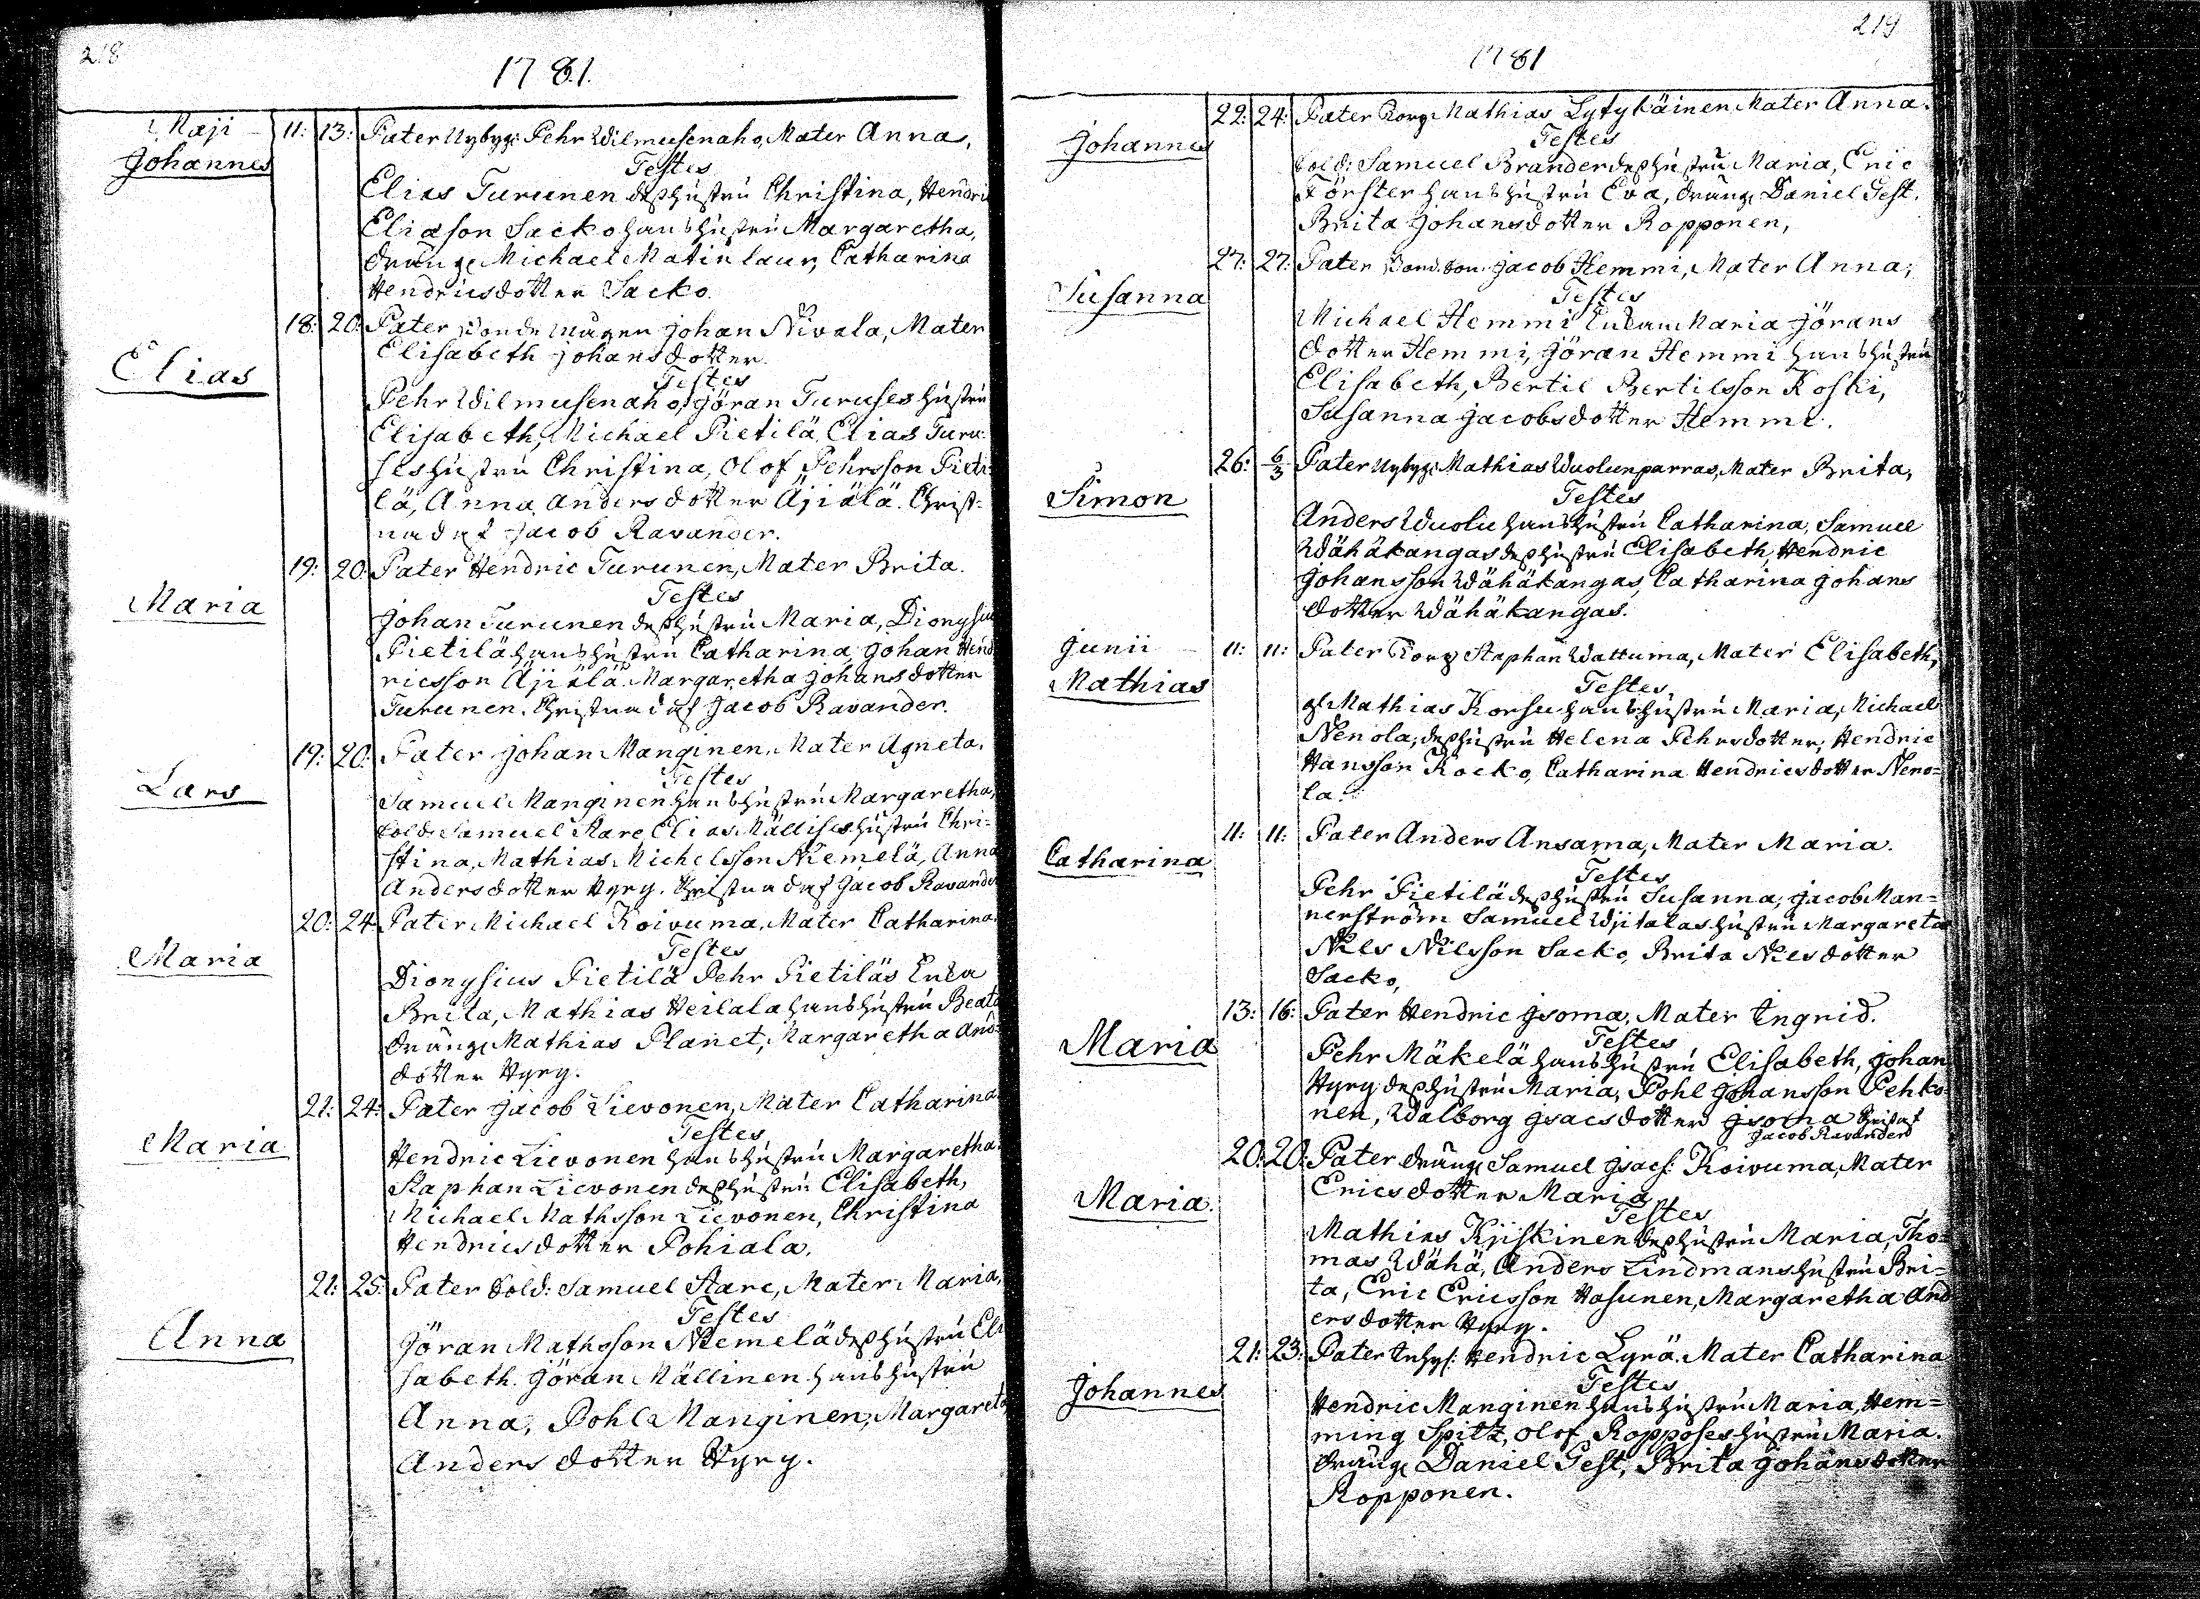 218
1781.
Maji 11: 13: Pater Nybyg: Pehr Wilmusenaho, Mater Anna,
Johannes
Testes
Elias Turunen deß hustru Christina, Hendric
Eliæson Sacko hans hustru Margaretha,
dräng Michael Matinlaur, Catharina
Hendricsdotter Sacko.
18: 20: Pater Bonde Johan Nivala, Mater
Elias
Elisabeth Johansdotter.
Testes
Pehr Wilmusenaho, Göran Turuses hustru
Elisabeth, Michael Pietilä, Elias Turu-
ses hustru Christina, Olof Pehrsson Pieti-
lä, Anna Andersdotter Äjiälä. Christ-
nad af Jacob Ravander.
19: 20: Pater Hendric Turunen, Mater Brita.
Maria
Testes
Johan Turunen deß hustru Maria, Dionysius
Pietilä hans hustru Catharina, Johan Hend
ricsson Äjiälä. Margaretha Johansdotter
Turunen. Christnad af Jacob Ravander.
19: 20: Pater Johan Manginen, Mater Agneta.
Lars
Testes
Samuel Manginen hans hustru Margaretha,
Sold: Samuel Stare, Elias Mällises hustru Chri-
stina, Mathias Michelsson Niemelä, Anna
Andersdotter Hyry. Christnad af Jacob Ravander
20: 24: Pater Michael Koivuma, Mater Catharina.
Maria
Testes
Dionysius Pietilä Pehr Pietiläs Enka
Brita, Mathias Heilala hans hustru Beata
dräng Mathias Planet, Margaretha And-
dotter Hyry.
21: 24: Pater Jacob Lievonen, Mater Catharina.
Maria
Testes
Hendric Lievonen hans hustru Margaretha.
Staphan Lievonen deß hustru Elisabeth,
Michael Mathsson Lievonen, Christina
Hendricsdotter Pohiala.
21: 25: Pater Sold: Samuel Stare, Mater Maria,
Anna
Testes
Göran Mathsson Niemelä deß hustru Eli
sabeth. Göran Mällinen hans hustru
Anna, Pohl Manginen, Margareta
Anders dotter Hyry.
219
1781
22: 24: Pater Korp. Mathias Lytykäinen Mater Anna.
Johannes
Testes
Sold: Samuel Brander deß hustru Maria, Eric
Förster hans hustru Eva, dräng Daniel Gest.
Brita Johansdotter Ropponen,
27: 27: Pater Bond. Son. Jacob Hemmi, Mater Anna,
Susanna
Testes
Michael Hemmi Enkan Maria Görans
dotter Hemmi, Göran Hemmi hans hustru
Elisabeth, Bertil Bertilsson Koski,
Susanna Jacobsdotter Hemmi.
26: 6/3 Pater Nybyg: Mathias Wuolunparras, Mater Brita,
Simon
Testes
Anders Wuolu hans hustru Catharina, Samuel
Wähäkangas deß hustru Elisabeth, Hendric
Johansson Wähäkangas, Catharina Johans
dotter Wähäkangas.
Junii 11: 11: Pater Korp Staphan Wattuma, Mater Elisabeth,
Mathias
Testes
Mathias Korsu hans hustru Maria, Michael
Nenola, deß hustru Helena Pehrsdotter, Hendric
Hansson Kocko, Catharina Hendricsdotter Neno-
la.
11: 11: Pater Anders Ansama, Mater Maria.
Catharina
Testes
Pehr Pietilä deß hustru Susanna, Jacob Man-
nerström Samuel Wjitalas hustru Margareta
Nils Nilsson Sacko, Brita Nilsdotter
Sacko,
13: 16: Pater Hendric Jsoma, Mater Ingrid.
Maria
Testes
Pehr Mäkelä hans hustru Elisabeth, Johan
Hyry deß hustru Maria, Pohl Johansson Pehko
nen, Walborg Jsacsdotter Jsoma
Jacob Ravander
20: 20: Pater dräng Samuel Jsacs: Koivuma, Mater
Maria.
Ericsdotter Maria
Testes
Mathias Kjiskinen deß hustru Maria, Tho-
mas Wähä, Anders Lindmans hustru Bri-
ta, Eric Ericsson Hasunen, Margaretha And
ersdotter Hyry.
21: 23: Pater Inhys: Hendric Lyrä. Mater Catharina
Johannes
Testes
Hendric Manginen hans hustru Maria, Hem-
ming Spitz, Olof Ropposes hustru Maria.
dräng Daniel Gest, Brita Johansdotter
Ropponen.